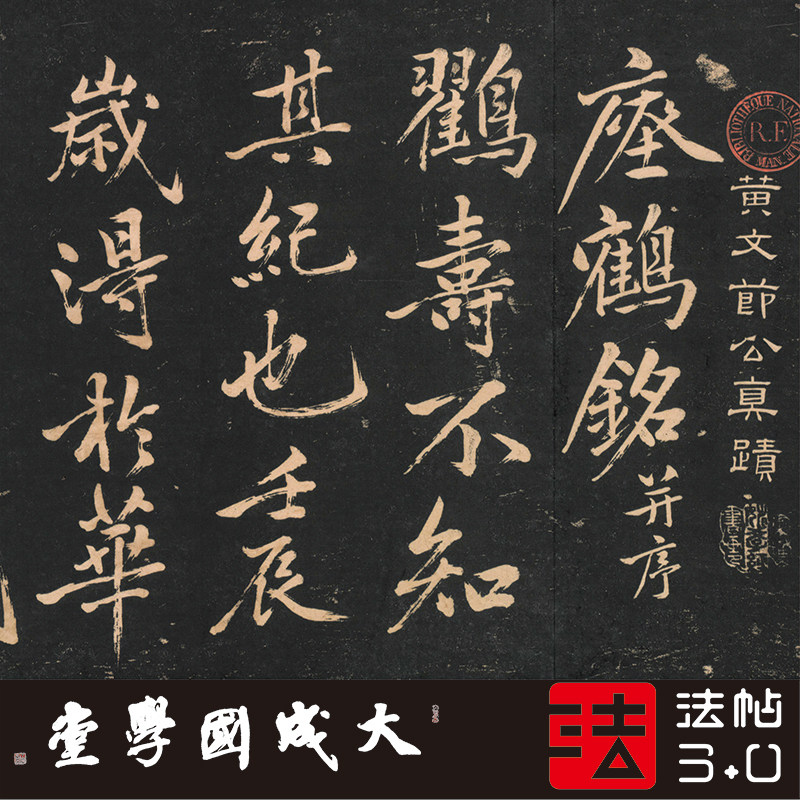 黄文節公真蹟
BIBLIOTHÈQUE NATIONALE MAN
R.F.
瘞鶴銘并序
鸛壽不知
其紀也壬辰
歲得於華
大成國學堂
法
法帖
3.0